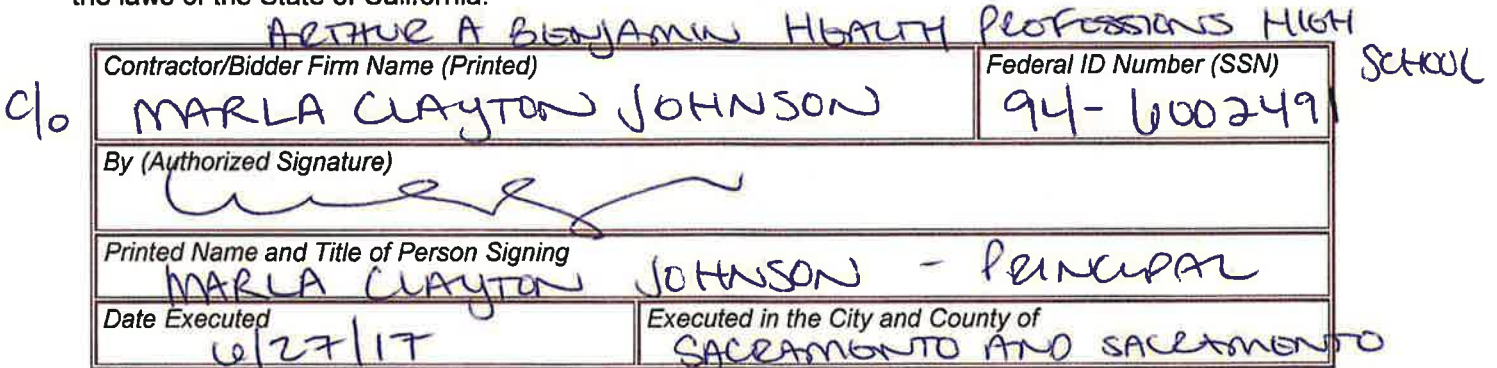 the laws of the State of California.
ARTHUR A BENJAMIN HEALTH PROFESSIONS HIGH SCHOOL
Contractor/Bidder Firm Name (Printed)
Federal ID Number (SSN)
c/o MARLA CLAYTON JOHNSON
94-6002491
By (Authorized Signature)
Printed Name and Title of Person Signing
MARLA CLAYTON JOHNSON - PRINCIPAL
Date Executed
Executed in the City and County of
6/27/17
SACRAMENTO AND SACRAMENTO